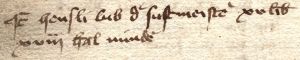 It hensli bub d' sustmeist' xv lib
xviii hal minde